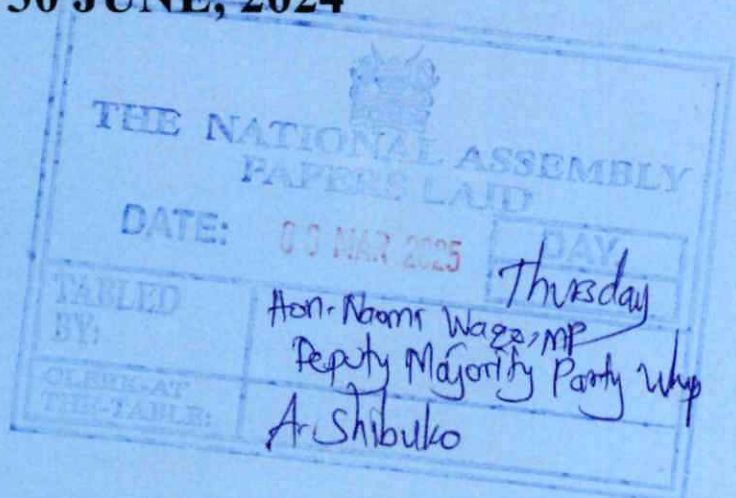 30 JUNE, 2024
THE NATIONAL ASSEMBLY
PAPERS LAID
DATE: MAR 2025 DAY
Thursday
TABLED BY: Hon. Naomi Waqo, MP
Deputy Majority Party Whip
CLERK-AT THE-TABLE: A. Shibuko